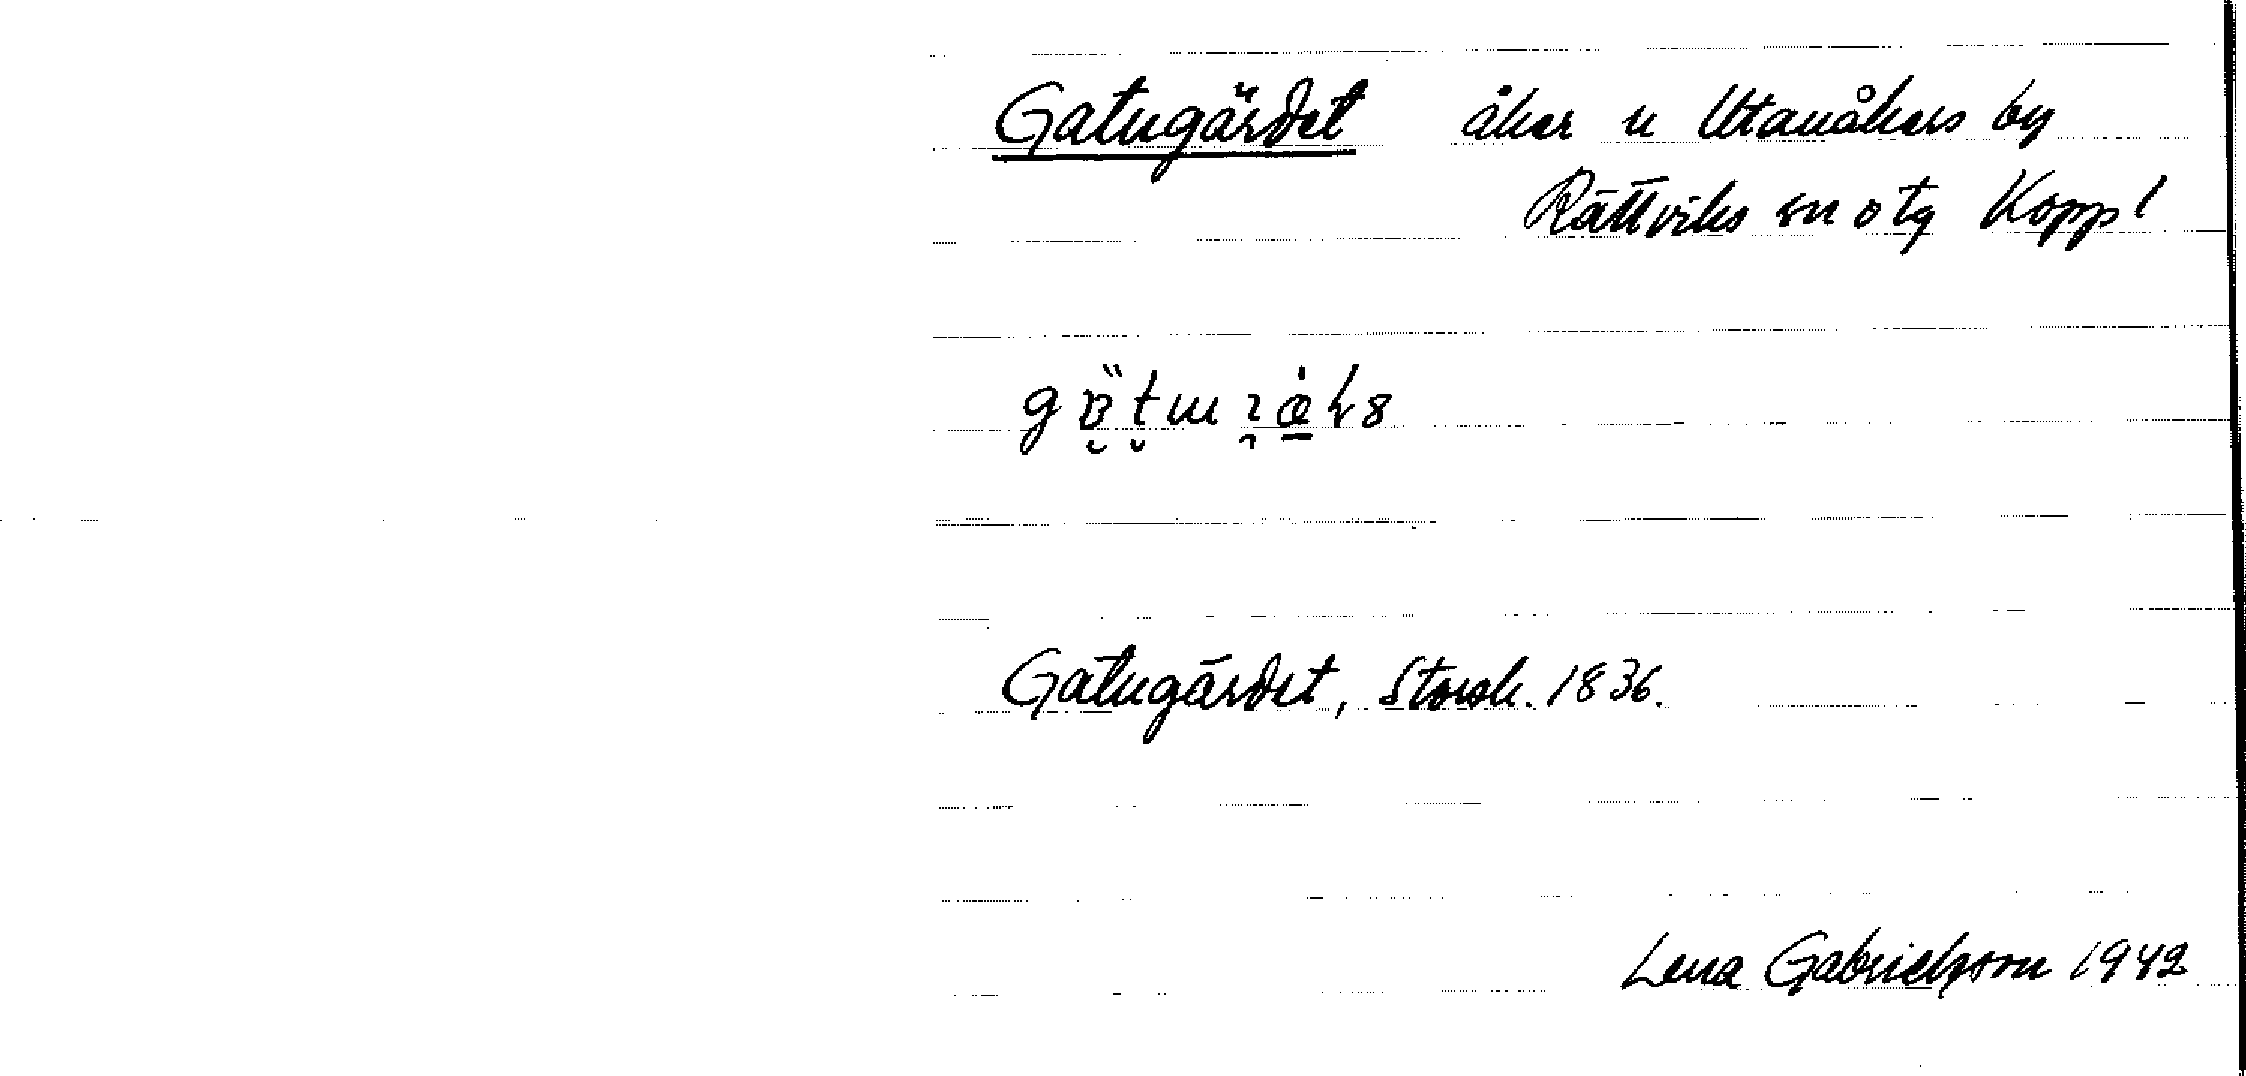 Gatugärdet åker u Utanåkers by
Rättviks sn o tg Kopp l
Gatugärdet, Storsk. 1836.
Lena Gabrielsson 1942